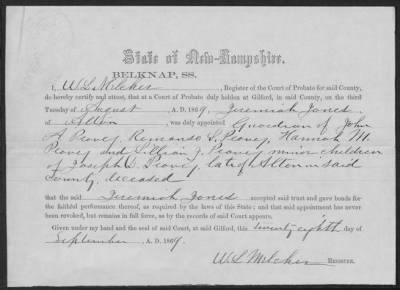 State of New-Hampshire.
BELKNAP, SS.
I, W L Melcher, Register of the Court of Probate for said County,
do hereby certify and attest, that at a Court of Probate duly holden at Gilford, in said County, on the third
Tuesday of August A. D. 1869, Jeremiah Jones
of Alton was duly appointed Guardian of John
A Peavey, S. Peavey, Hannah M.
Peavey and J. Peavey minor children
of Joseph Peavey, late of Alton in said
County, deceased
that the said Jeremiah Jones accepted said trust and gave bonds for
the faithful performance thereof, as required by the laws of this State; and that said appointment has never
been revoked, but remains in full force, as by the records of said Court appears.
Given under my hand and the seal of said Court, at said Gilford, this twenty eighth day of
September A. D. 1869.
W. L. Melcher REGISTER.